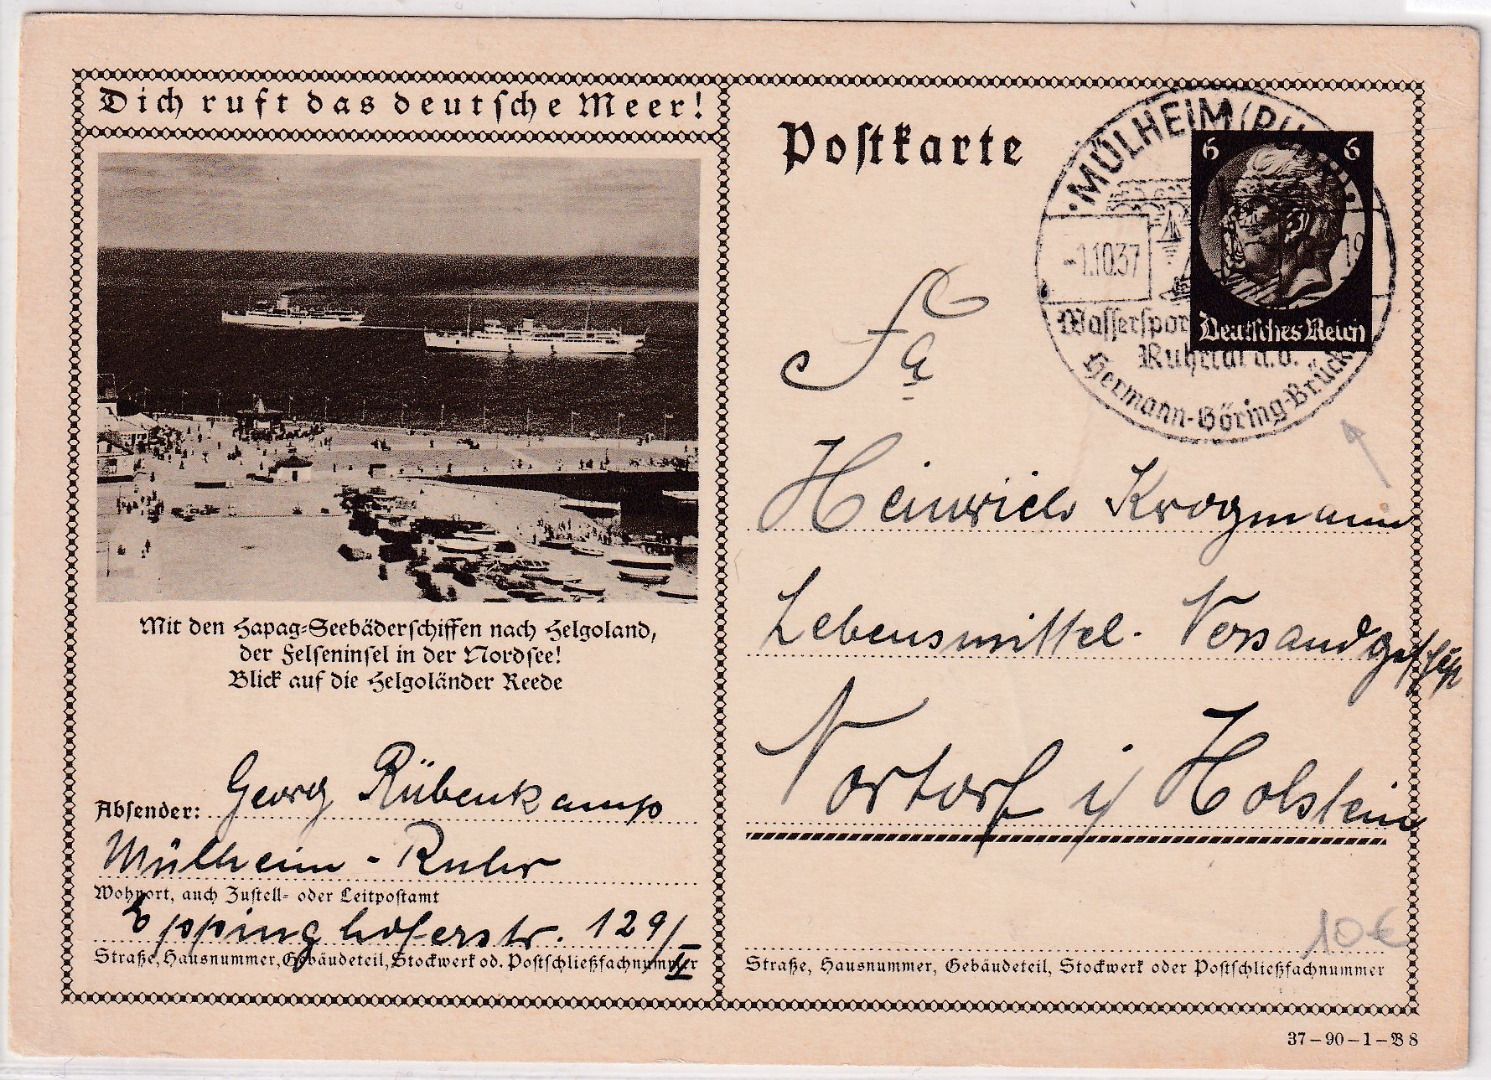 Dich ruft das deutsche Meer!
Mit den Hapag-Seebäderschiffen nach Helgoland,
der Felseninsel in der Nordsee!
Blick auf die Helgoländer Reede
Absender: Georg Rübenkamp
Mülheim - Ruhr
Wohnort, auch Zustell- oder Leitpostamt
Eppinghoferstr. 129/II
Straße, Hausnummer, Gebäudeteil, Stockwerk od. Postschließfachnummer
Postkarte
MÜLHEIM (RUHR)
-1.10.37
19
Wasserspor
Ruhrtal a.d.
Hermann-Göring-Brück
6 6
Deutsches Reich
Fa
Heinrich Krogmann
Lebensmittel-Versandgesch
Nortorf i/ Holstein
10€
Straße, Hausnummer, Gebäudeteil, Stockwerk oder Postschließfachnummer
37-90-1-B8